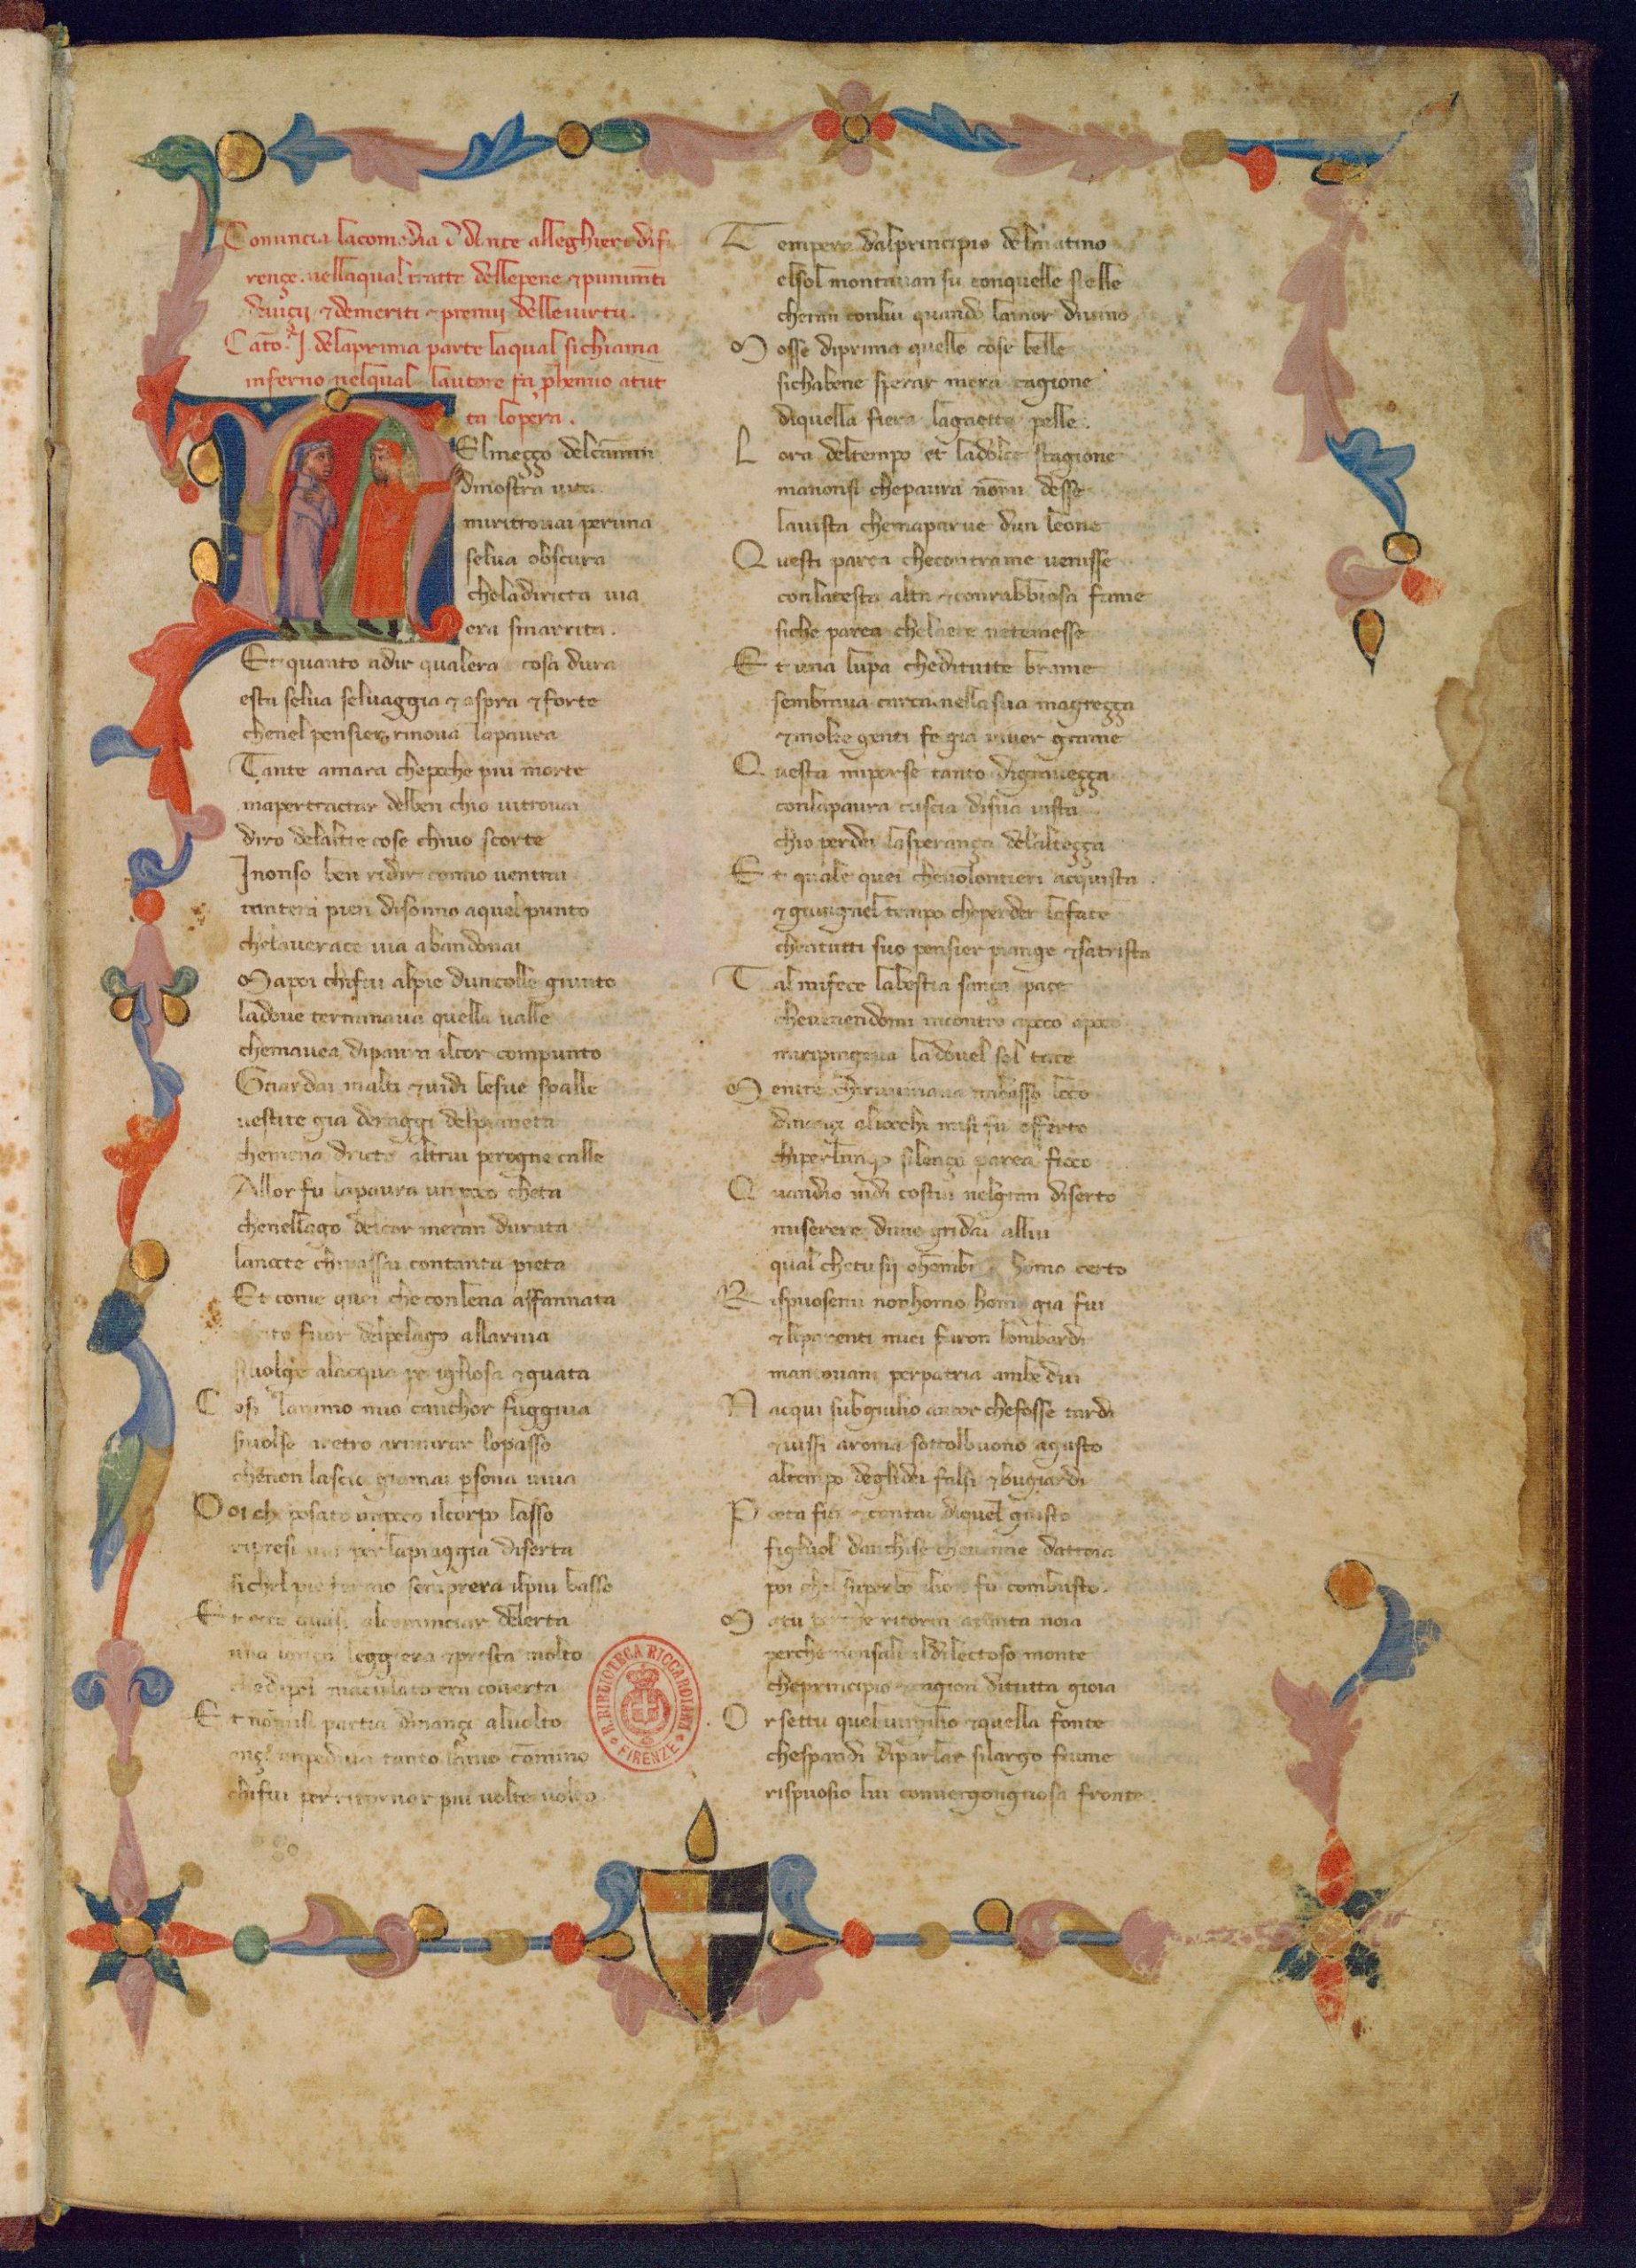 Comincia lacomedia d dante alleghieri difi
rençe. nellaqual tratta dellepene & punimti
deuiçij & demeriti & premij delle uirtu.
Cāto I delaprima parte laqual sichiama
inferno nelqual lautore fa phemio atut
ta lopera.
NElmeççο delcamin
dinostra uita
miritrouai peruna
selua obscura
cheladiricta uia
era smarrita.
Et quanto adir qualera cosa dura
esta selua seluaggia & aspra & forte
chenel pensier rinoua lapaura
Tante amara chepoche piu morte
mapertractar delben chio uitrouai
diro delaltre cose chiuo scorte
Inonso ben ridir comio uentrai
tantera pien disonno aquel punto
chelauerace uia abandonai
Mapoi chifui alpie duncolle giunto
ladoue terminaua quella ualle
chemauea dipaura ilcor compunto
Guardai inalti & uidi lesue spalle
uestite gia deraggi delpianeta
chemena dricto altrui perogne calle
Allor fu lapaura unpoco cheta
chenellago delcor meran durata
lanocte chipassai contanta pieta
Et come quei checonlena affannata
fuor delpelago allariua
uolge alacqua perigliosa & guata
Cosi lanimo mio canchor fuggiua
siuolse aretro arimirar lopasso
chenon lascio giamai psona uiua
Poi che posato unpoco ilcorpo lasso
ripresi uia perlapiaggia diserta
sichel pie fermo semprera ilpiu basso
Et ecco quasi alcominciar delerta
una lonça leggiera & presta molto
chedipel maculato era couerta
Et nomisi partia dinançi aluolto
ançi impediua tanto ilmio comino
chifui perritornar piu uolte uolto
Tempera dalprincipio delmatino
elsol montauan su conquelle stelle
cheran conlui quando lamor diuino
Mosse diprima quelle cose belle
sichabene sperar mera cagione
diquella fiera lagaetta pelle.
Lora deltempo et ladolce stagione
manonsi chepaura nōmi desse
lauista chemaparue dun leone
Questi parea checontrame uenisse
conlatesta alta & conrabbiosa fame
siche parea chelaere netemesse
Et una lupa cheditutte brame
sembiaua carca nella sua magreçça
& molte genti fe gia uiuer grame
Questa miporse tanto digraueçça
conlapaura cuscia disua uista
chio perdei lasperança delalteçça
Et quale quei cheuolontieri acquista
& giungnel tempo cheperder loface
chentutti suo pensier piange & satrista
Tal mifece labestia sança pace
cheuenendomi incontro apoco apoco
miripingeua ladouel sol tace
Mentre chirouinaua inbasso loco
dinançi aliocchi misi fu offerto
chiperlungo silenço parea fioco
Quandio uidi costui nelgran diserto
miserere dime gridai allui
qual chetu sij od homo certo
Rispuosemi nonhomo homo gia fui
& liparenti miei furon lombardi
mantouani perpatria ambedui
Nacqui subgiulio ancor chefosse tardi
& uissi aroma sottolbuono agusto
altempo deglidei falsi & bugiardi
Poeta fui & cantai diquel giusto
figliuol danchise cheuenne datroia
poi chel superbo ilion fu combusto.
Matu perche ritorni atanta noia
perche nonsali ildilectoso monte
cheprincipio & cagion ditutta gioia
Or settu quel uirgilio & quella fonte
chespandi diparlar silargo fiume
rispuosio lui conuergongnosa fronte.
R. BIBLIOTECA RICCARDIANA
FIRENZE